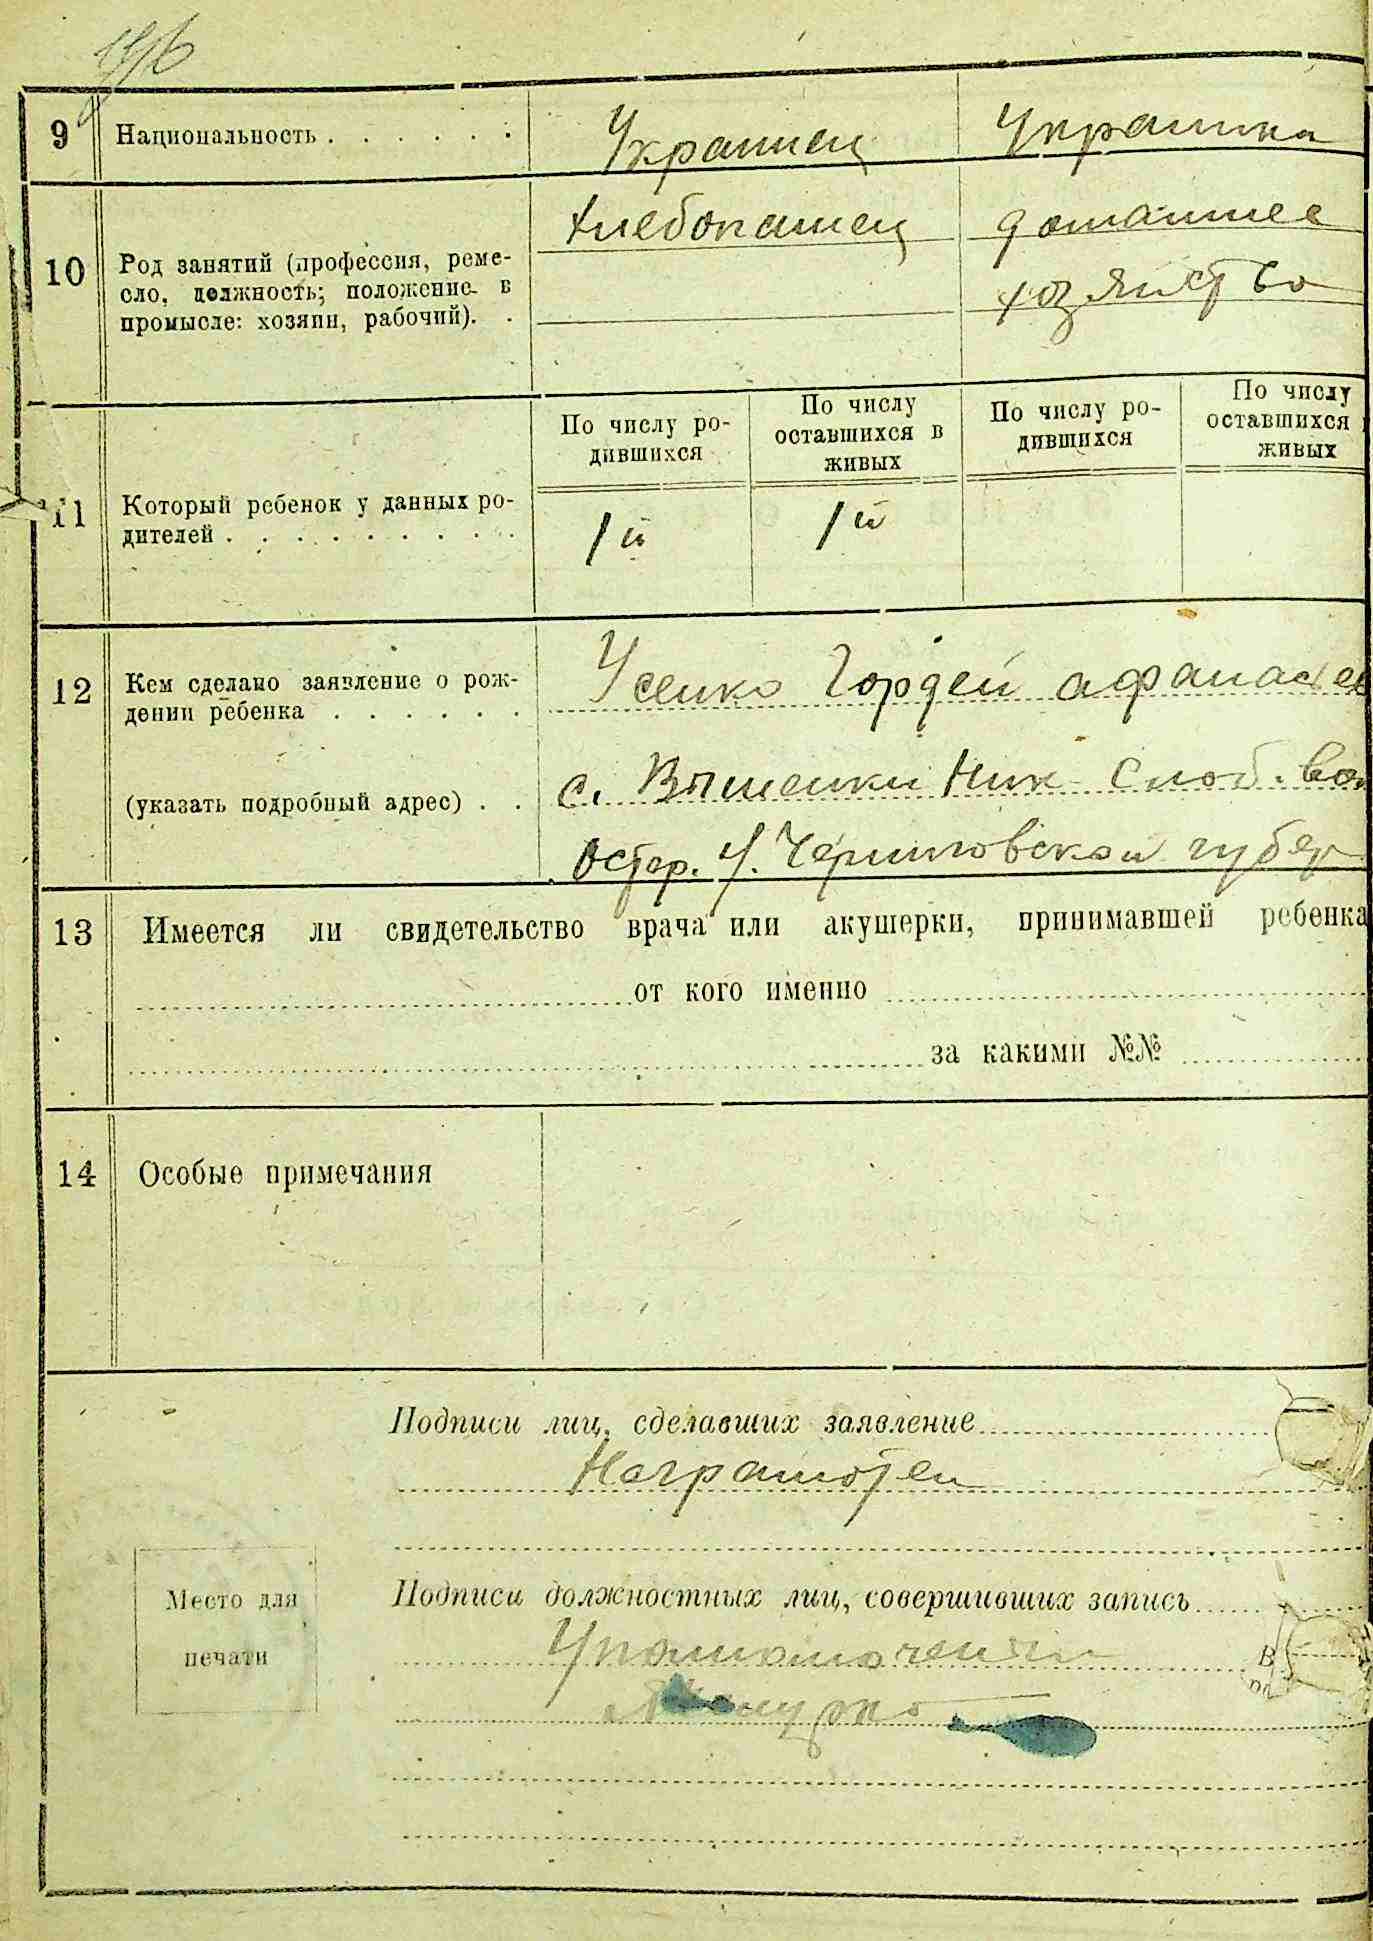 9 Национальность . . . . . . Украинец Украинка
10 Род занятий (профессия, реме-
сло, должность; положение в
промысле: хозяин, рабочий). .
Хлебопашец домашнее
хозяйство
По числу ро-
дившихся
По числу
оставшихся в
живых
По числу ро-
дившихся
По числу
оставшихся
живых
11 Который ребенок у данных ро-
дителей . . . . . . . . . .
1й 1й
12 Кем сделано заявление о рож-
дении ребенка . . . . . .
Усенко Гордей Афанасьев
(указать подробный адрес) . .
с. Вишенки Ник-Слоб. вол
Остер. у. Черниговской губер
13 Имеется ли свидетельство врача или акушерки, принимавшей ребенка
от кого именно
за какими №№
14 Особые примечания
Подписи лиц, сделавших заявление
Неграмотен
Место для
печати
Подписи должностных лиц, совершивших запись